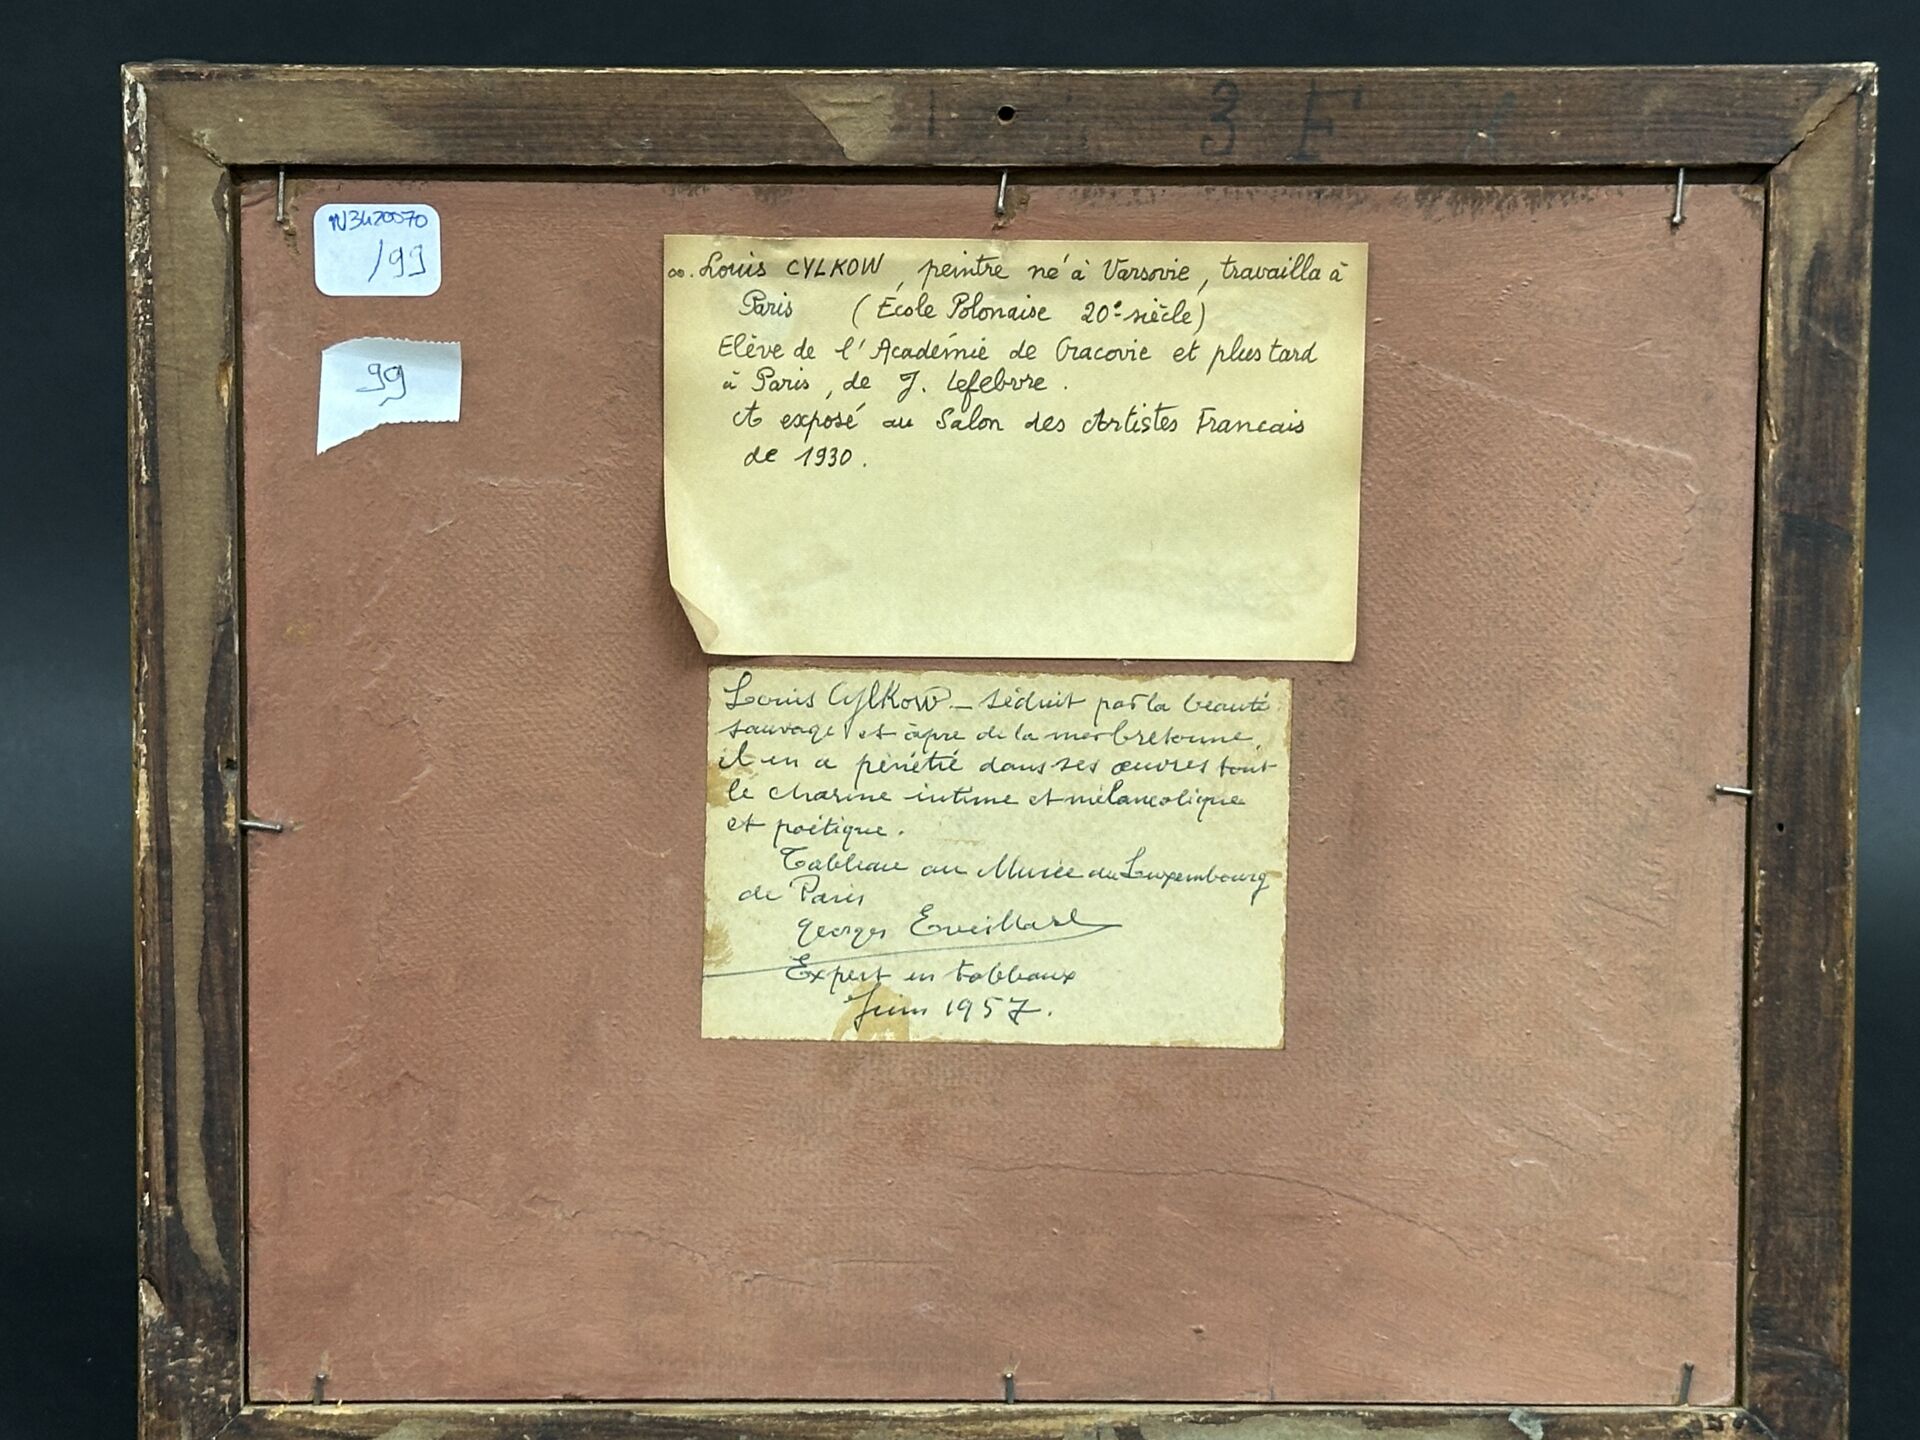 3 E
N3420070
/99
99
∞. Louis CYLKOW, peintre né à Varsovie, travailla à
Paris (École Polonaise 20e siècle)
Elève de l'Académie de Cracovie et plus tard
à Paris, de J. Lefebvre.
A exposé au Salon des Artistes Francais
de 1930.
Louis Cylkow _ séduit par la beauté
sauvage et âpre de la mer bretonne,
il en a pénétré dans ses œuvres tout
le charme intime et mélancolique
et poétique.
Tableau au Musée du Luxembourg
de Paris
Georges Eveillard
Expert en tableaux
Juin 1957.